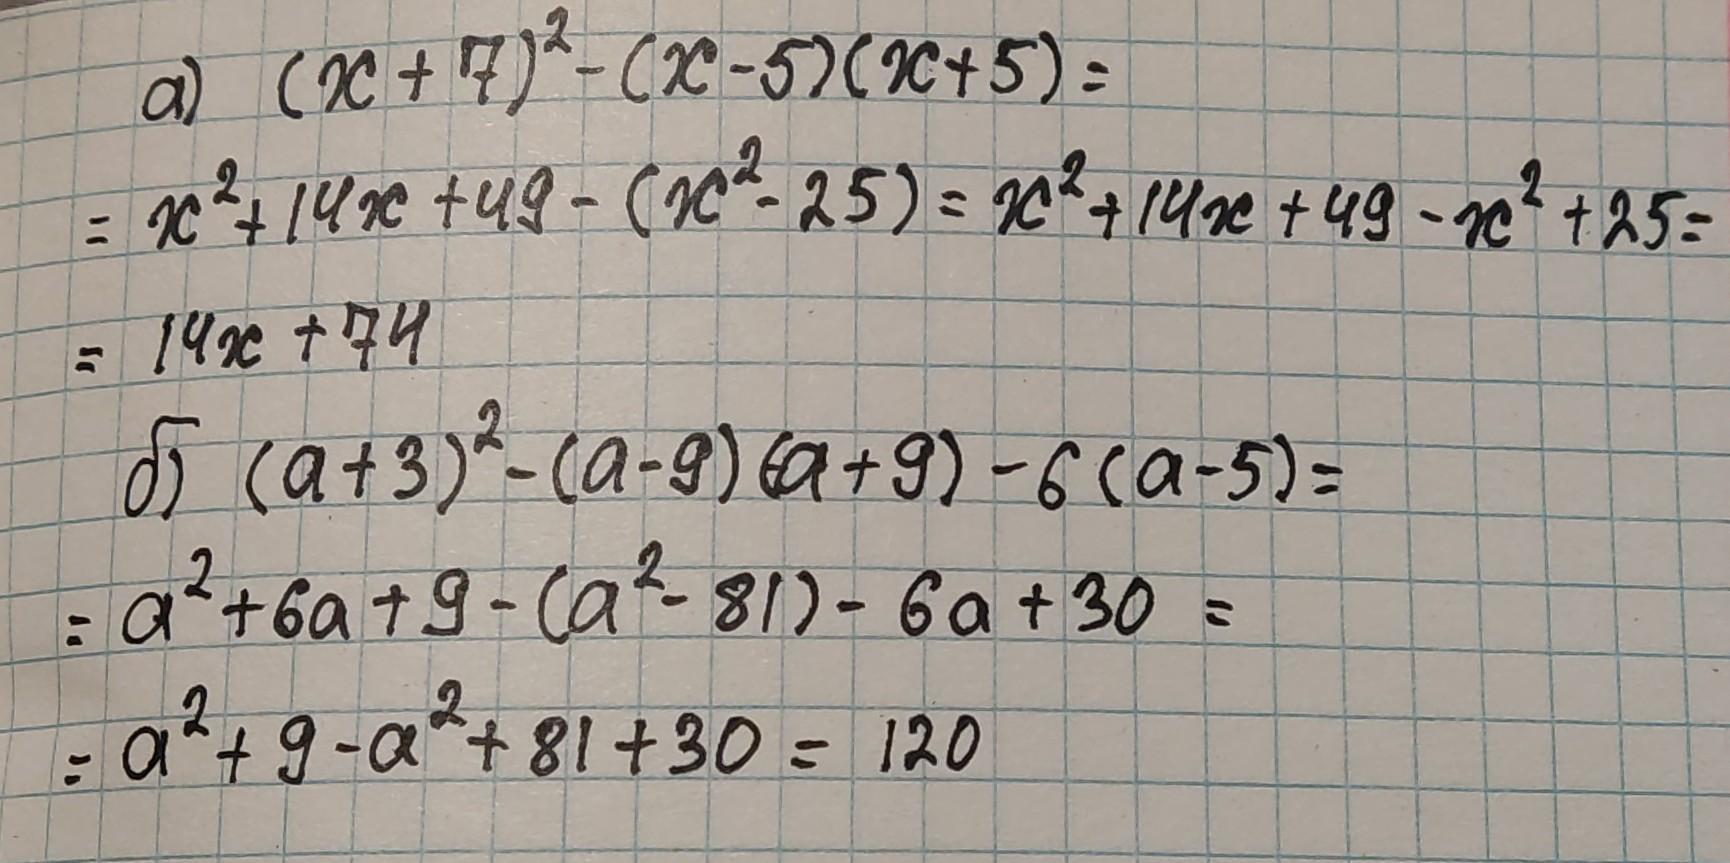 а) (x + 7)² - (x - 5)(x + 5) =
= x² + 14x + 49 - (x² - 25) = x² + 14x + 49 - x² + 25 =
= 14x + 74
б) (a + 3)² - (a - 9)(a + 9) - 6(a - 5) =
= a² + 6a + 9 - (a² - 81) - 6a + 30 =
= a² + 9 - a² + 81 + 30 = 120